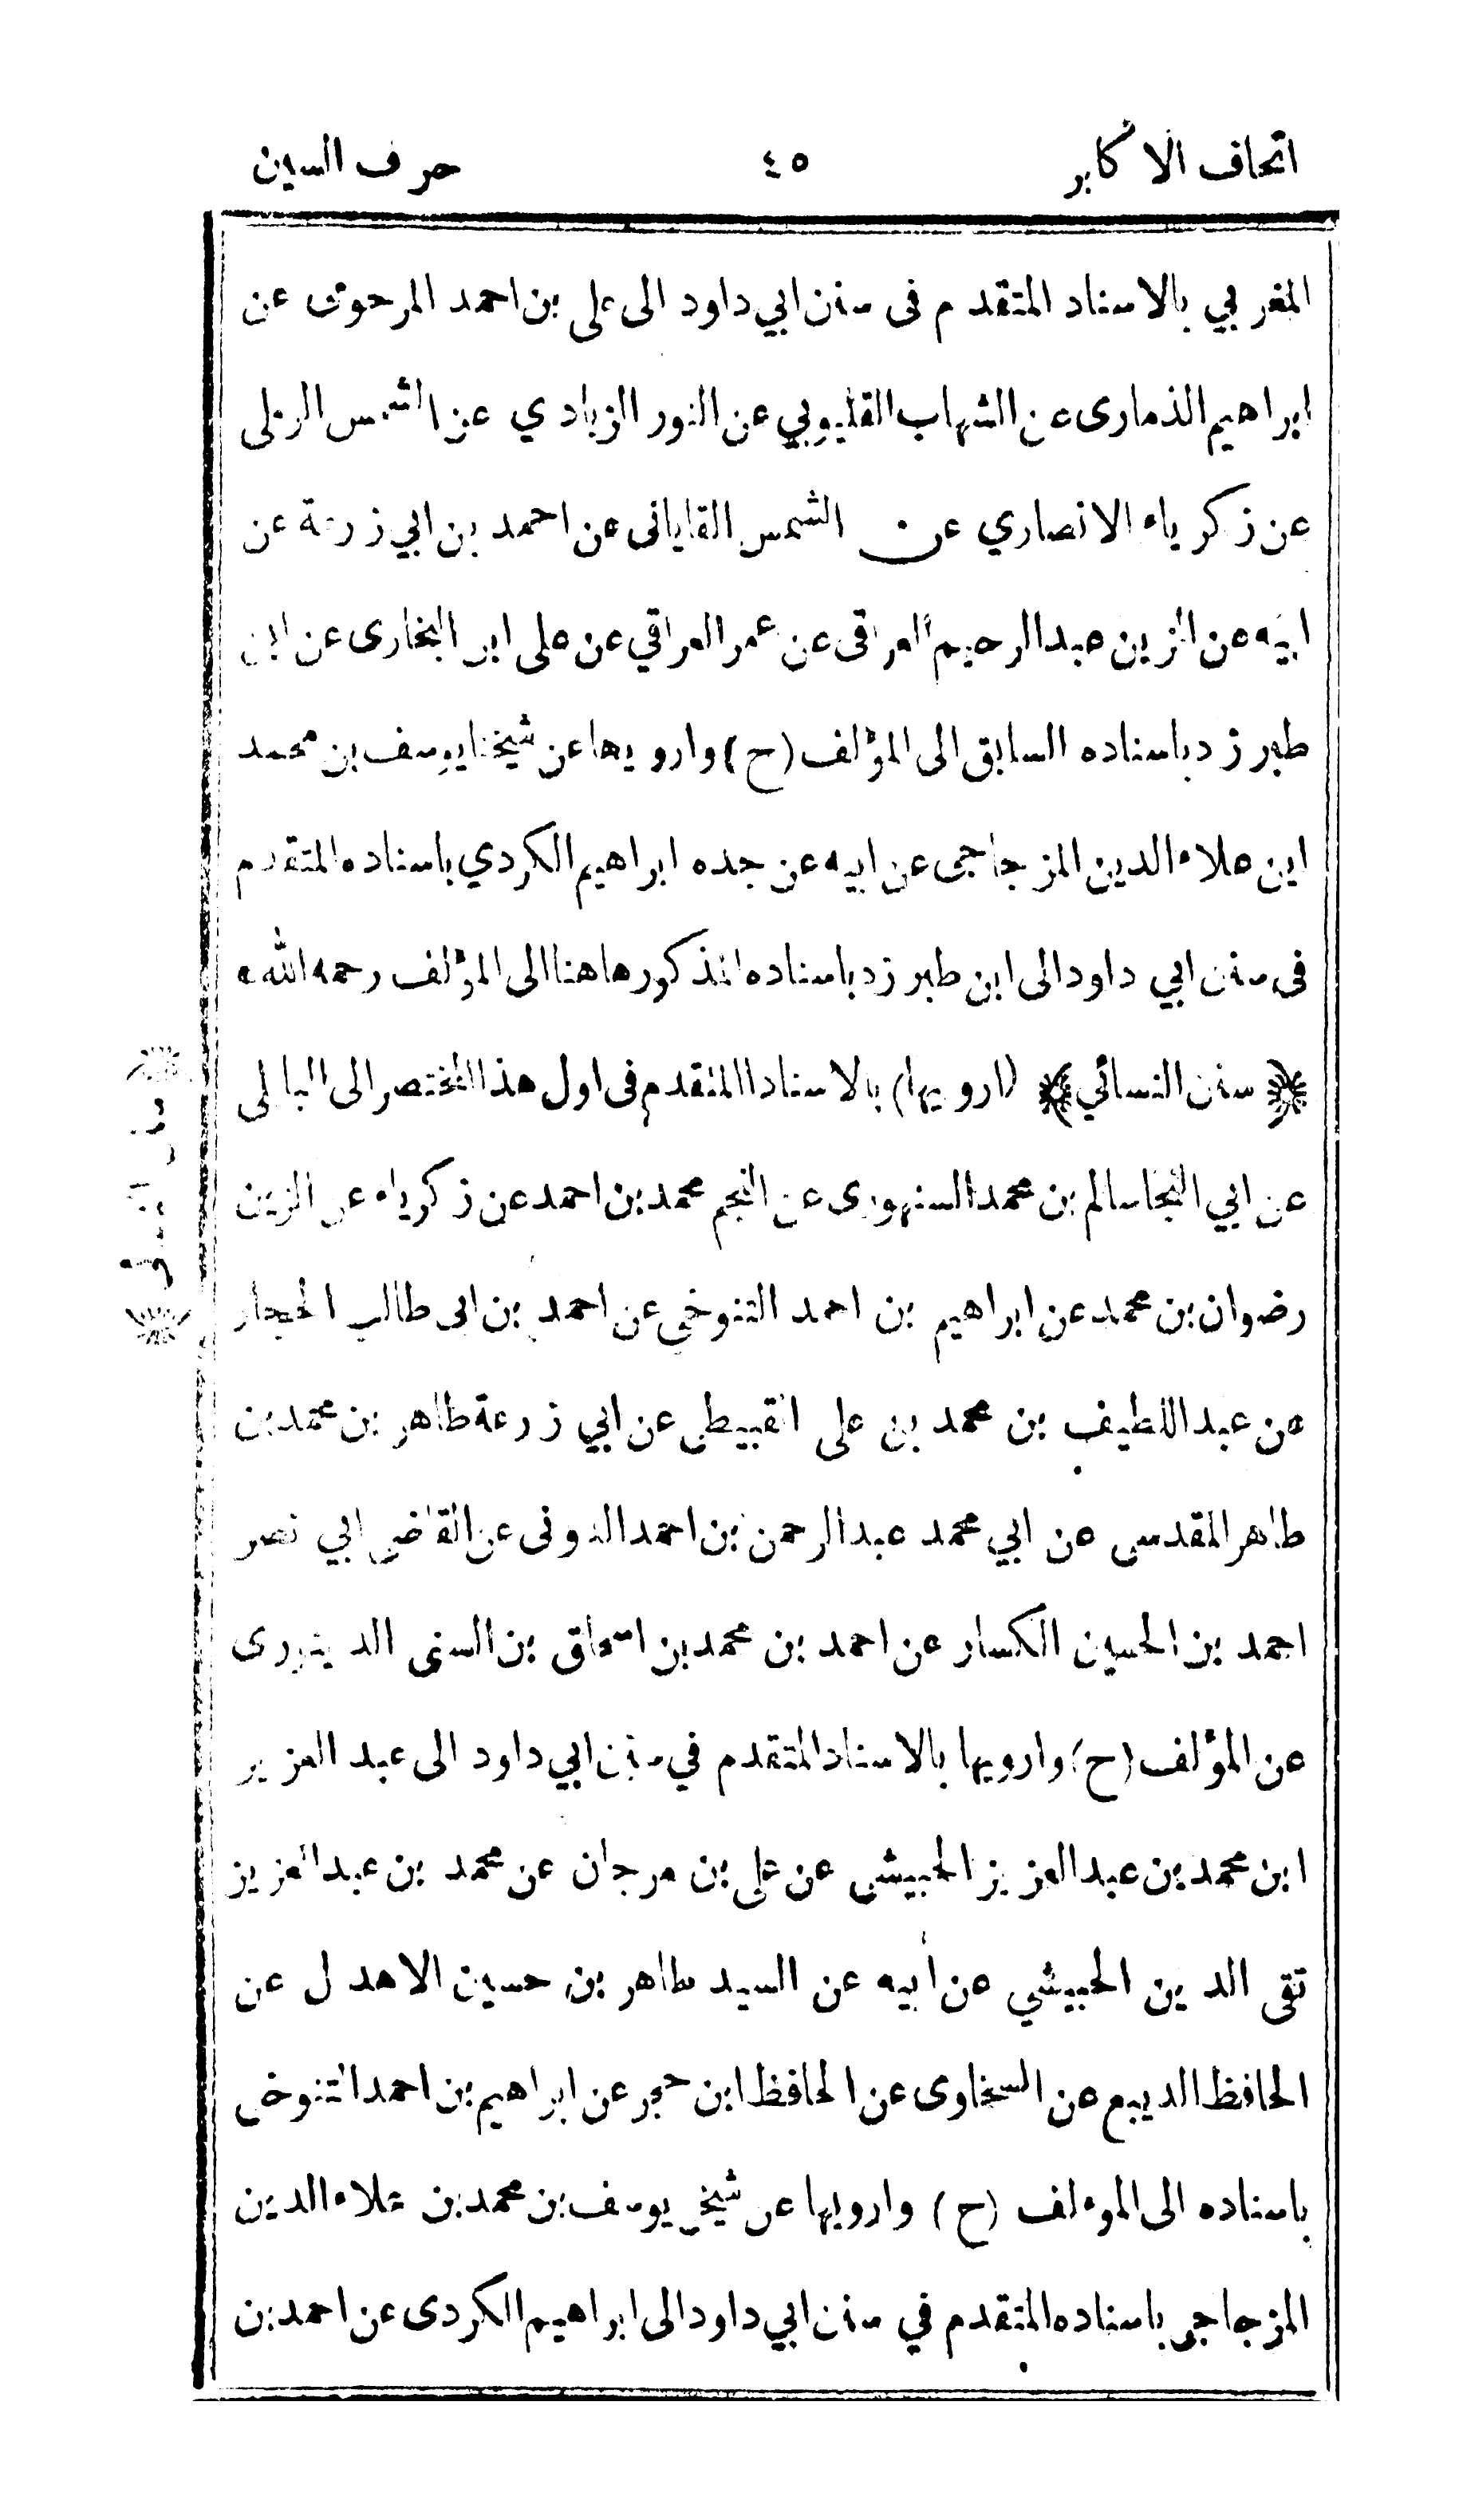 اتحاف الاكابر ٤٥ حرف السين
المغربي بالاسناد المتقدم فى سنن ابي داود الى على بن احمد المرحومى عن
ابراهيم الذمارى عن الشهاب القليوبي عن النور الزيادي عن الشمس الرملى
عن زكرياء الانصاري عن الشمس القاياتى عن احمد بن ابي زرعة عن
ابيه عن الزين عبد الرحيم العراقى عن عمر العراقي عن على ابن البخارى عن ابن
طبرزد باسناده السابق الى المؤلف (ح) وارويها عن شيخنا يوسف بن محمد
ابن علاء الدين المزجاجى عن ابيه عن جده ابراهيم الكردي باسناده المتقدم
فى سنن ابي داود الى ابن طبرزد باسناده المذكور هاهنا الى المؤلف رحمه الله ه
﴿ سنن النسائي ﴾ (ارويها) بالاسناد المتقدم فى اول هذا المختصر الى البابلى
عن ابي النجا سالم بن محمد السنهورى عن النجم محمد بن احمد عن زكرياء عن الزين
رضوان بن محمد عن ابراهيم بن احمد التنوخى عن احمد بن ابى طالب الحجار
عن عبد اللطيف بن محمد بن على القبيطى عن ابي زرعة طاهر بن محمد بن
طاهر المقدسى عن ابي محمد عبد الرحمن بن احمد الدونى عن القاضى ابي نصر
احمد بن الحسين الكسار عن احمد بن محمد بن اسحاق بن السنى الدينورى
عن المؤلف (ح) وارويها بالاسناد المتقدم في سنن ابي داود الى عبد العزيز
ابن محمد بن عبد العزيز الحبيشى عن على بن مرجان عن محمد بن عبد العزيز
تقى الدين الحبيشي عن أبيه عن السيد طاهر بن حسين الاهدل عن
الحافظ الديبع عن السخاوى عن الحافظ ابن حجر عن ابراهيم بن احمد التنوخى
باسناده الى الموءلف (ح) وارويها عن شيخى يوسف بن محمد بن علاء الدين
المزجاجى باسناده المتقدم في سنن ابي داود الى ابراهيم الكردى عن احمد بن
﴿ سنن النسائى ﴾